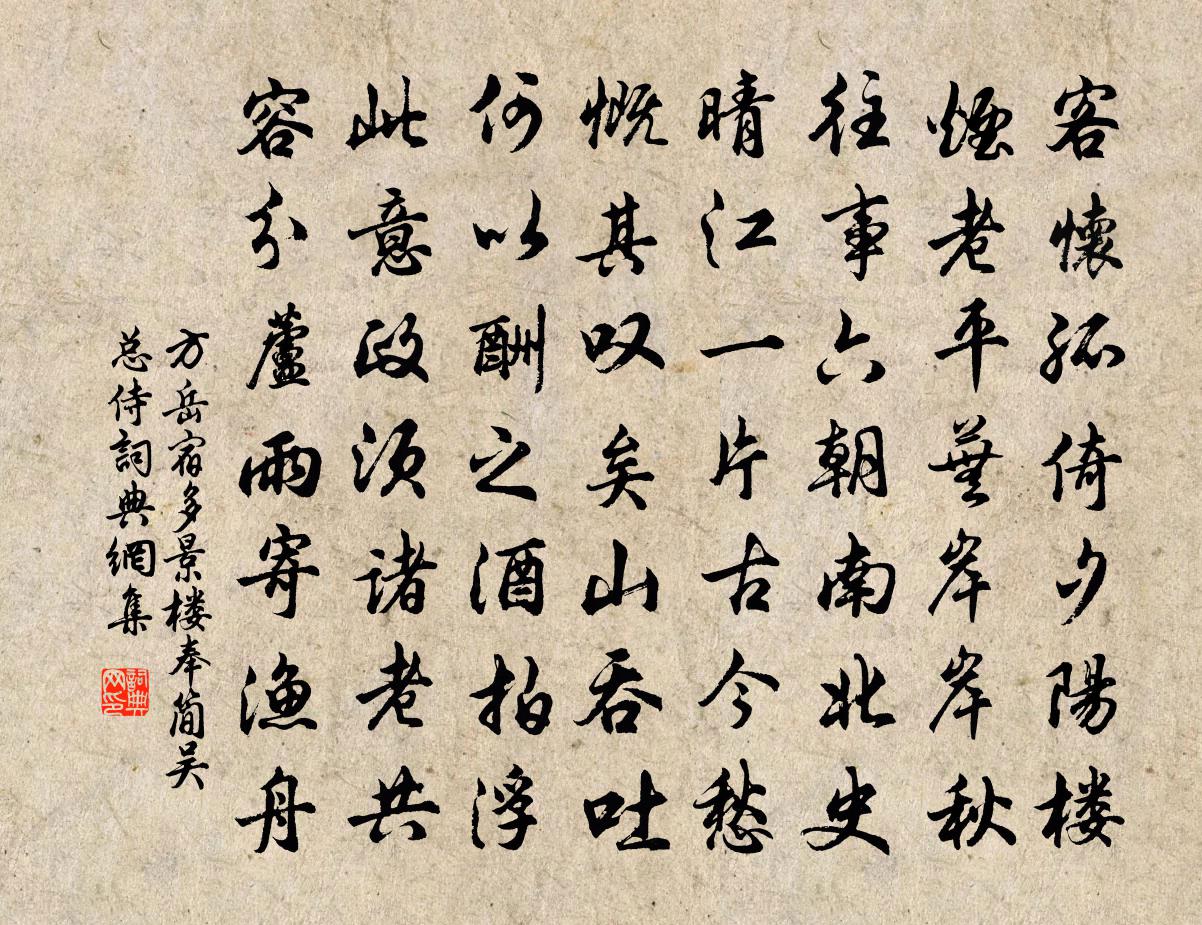 客懷孤倚夕陽楼
煙老平蕪岸岸秋
往事六朝南北史
晴江一片古今愁
慨其叹矣山吞吐
何以酬之酒拍浮
此意政须諸老共
容分蘆雨寄渔舟
方岳宿多景楼奉简吴
总侍詞典網集
詞典
网印